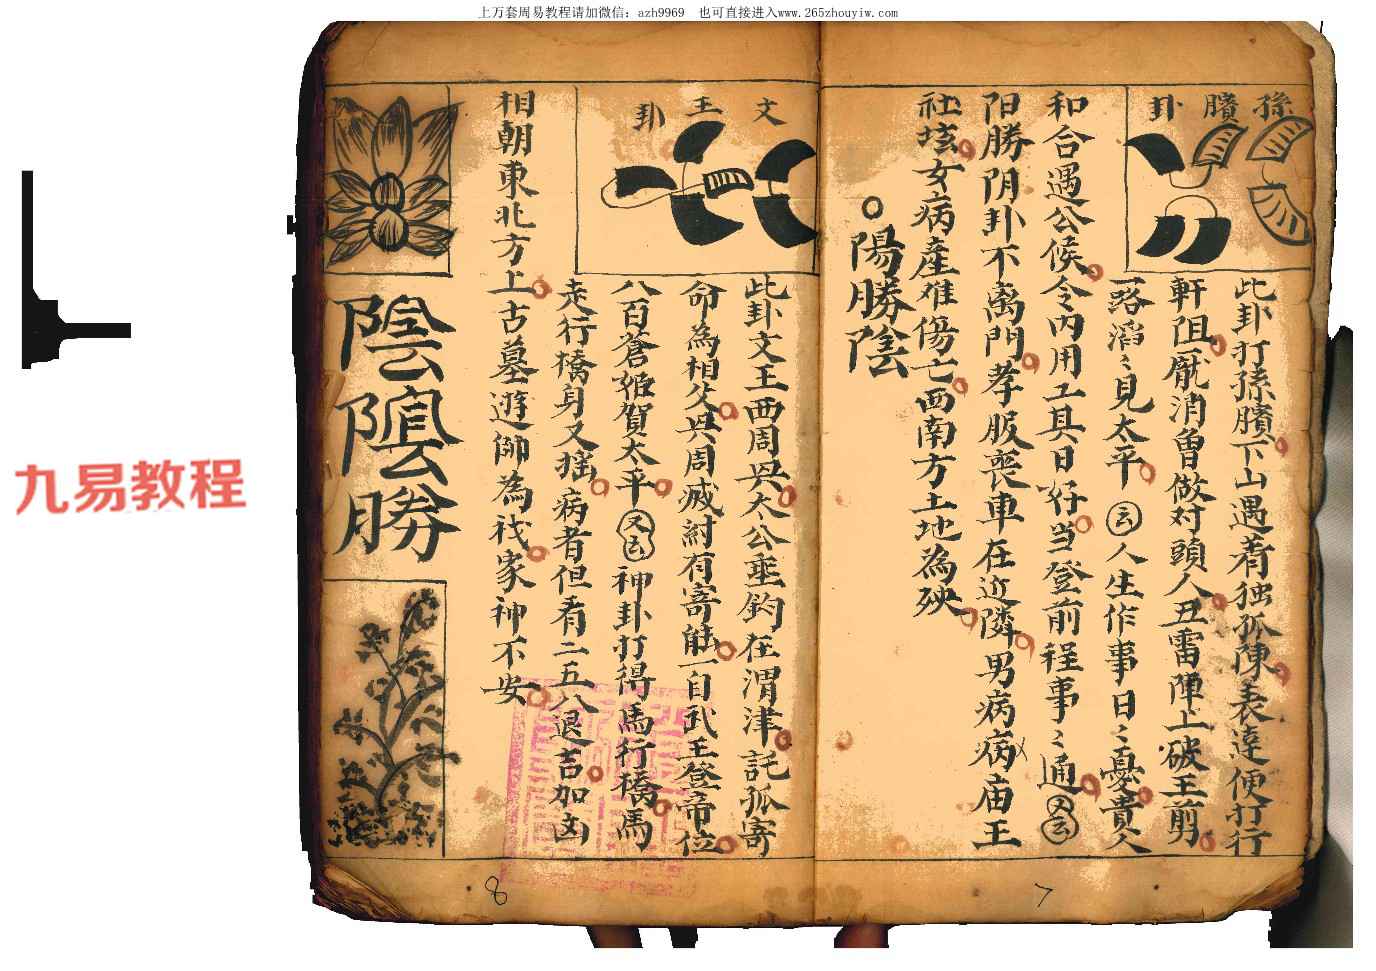 上万套周易教程请加微信：azh9969　也可直接进入www.265zhouyiw.com
九易教程
孫臏卦
此卦打孫臏下山遇着独孤陳表達便打行
軒阻厫消曾做对頭人丑雷陣上破王剪
一路滔〻見太平 云 人生作事日〻憂貴人
和合遇公候令内用工具日好当登前程事〻通 又云
阳勝阴卦不离門孝服喪車在近隣男病病庙王
社垓女病產难傷亡西南方土地為殃
陽勝陰
7
文王卦
此卦文王西周與太公垂釣在渭津託孤寄
命為相父與周滅紂有寄能一自武王登帝位
八百蒼姬賀太平 又云 神卦打得馬行橋馬
走行橋身又摇病者但看二五八退吉加凶
相朝東北方上古墓遊師為伐家神不安
陰陰勝
8